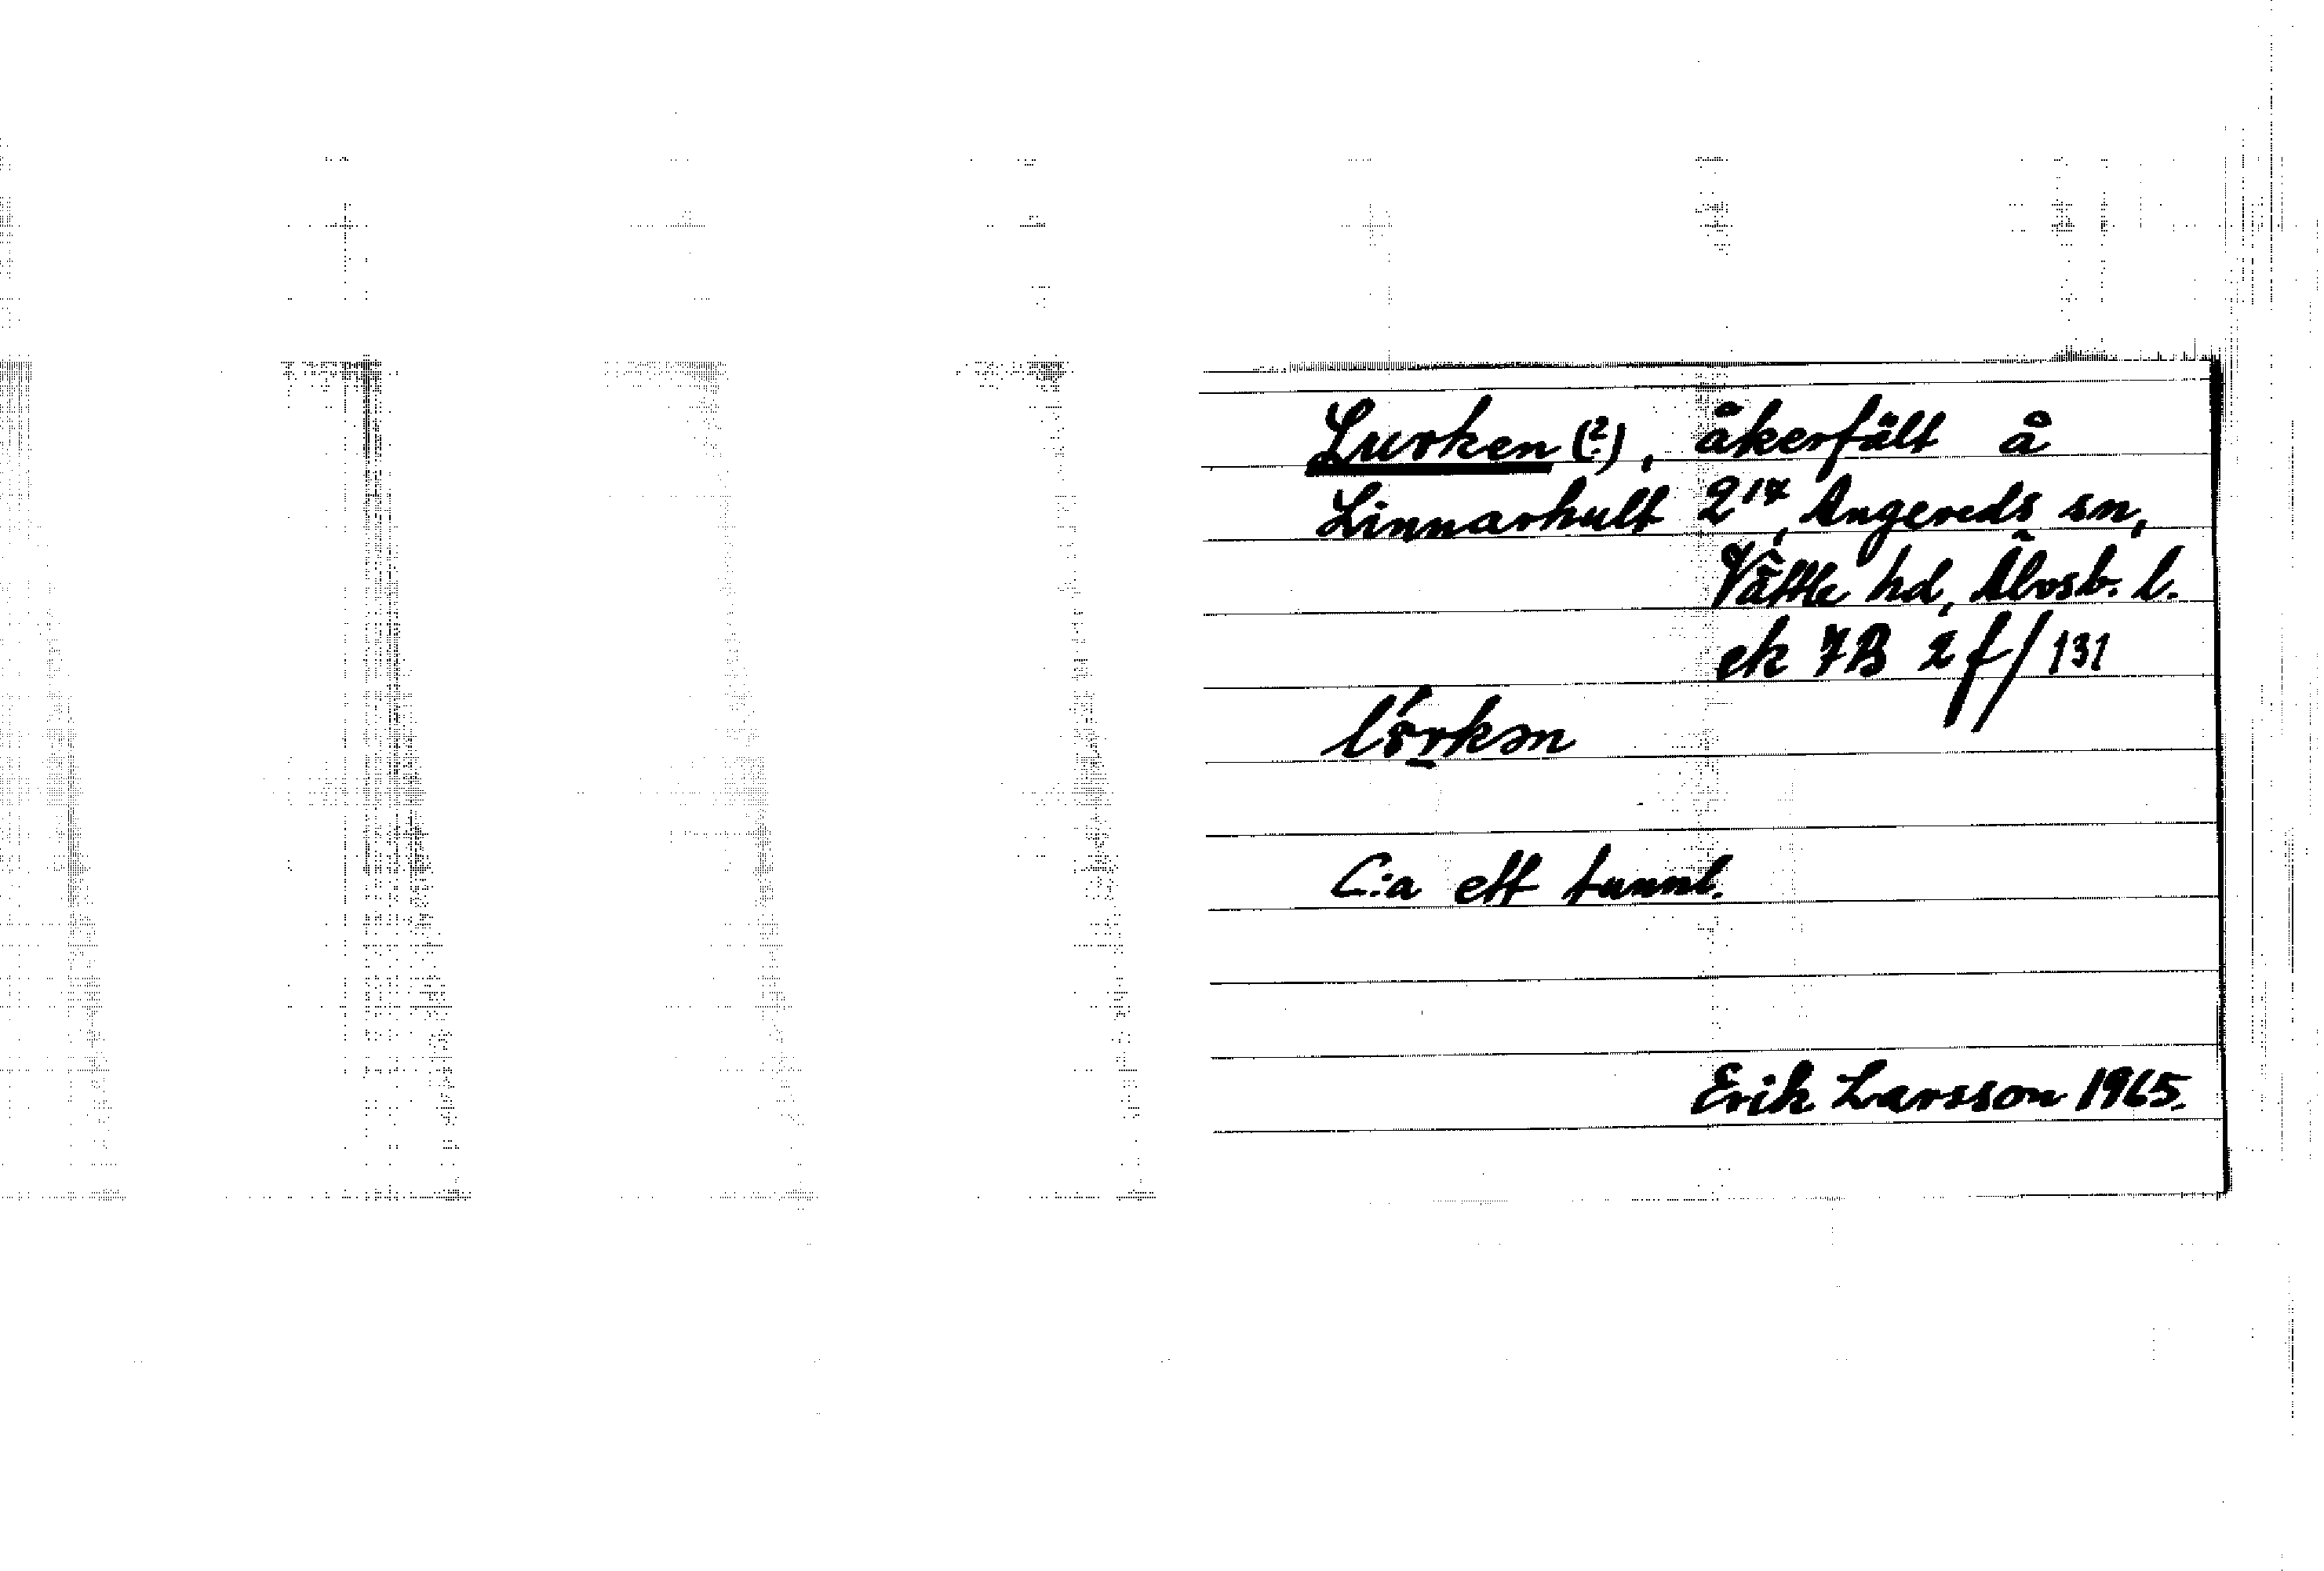 Lurken (?), åkerfält å
Linnarhult 2¹⁷, Angereds sn,
Vättle hd, Älvsb. l.
ek 7B 2 f/131
C:a ett tunnl.
Erik Larsson 1965.